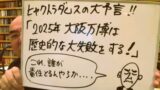 ヒャクトラダムスの大予言!!
「2025年 大阪万博は
歴史的な大失敗をする!」
これ、誰が
責任とるんやろか…。